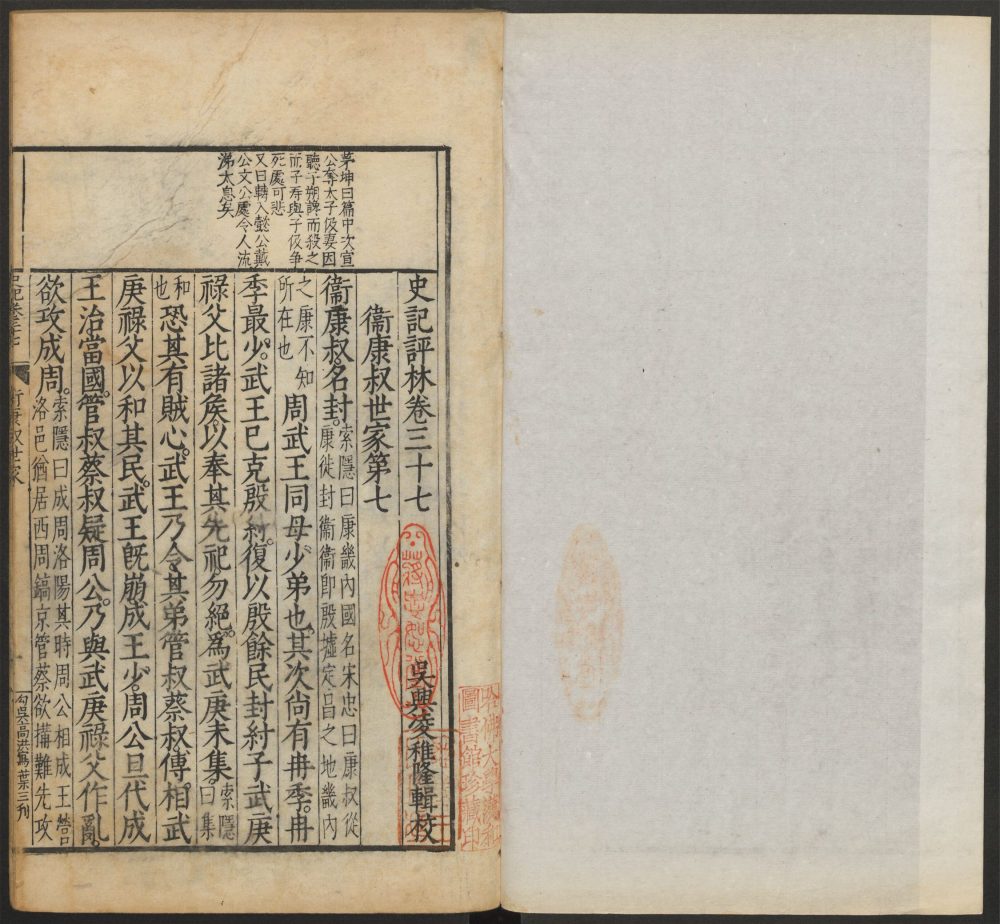 史記評林卷三十七
吳興凌稚隆輯校
衞康叔世家第七
衞康叔名封索隱曰康畿內國名宋忠曰康叔從
康徙封衞衞即殷墟定昌之地畿內
之康不知
所在也
周武王同母少弟也其次尚有冉季冉
季最少武王已克殷紂復以殷餘民封紂子武庚
祿父比諸侯以奉其先祀勿絕爲武庚未集索隱
曰集
和
也
恐其有賊心武王乃令其弟管叔蔡叔傅相武
庚祿父以和其民武王旣崩成王少周公旦代成
王治當國管叔蔡叔疑周公乃與武庚祿父作亂
欲攻成周索隱曰成周洛陽其時周公相成王營
洛邑猶居西周鎬京管蔡欲搆難先攻
茅坤曰篇中次宣
公奪太子伋妻因
聽子朔譖而殺之
而子壽與子伋爭
死處可悲
又曰轉入懿公戴
公文公處令人流
涕太息矣
衞康叔世家
勾吳高洪寫 葉三刊
哈佛大學漢和
圖書館珍藏印